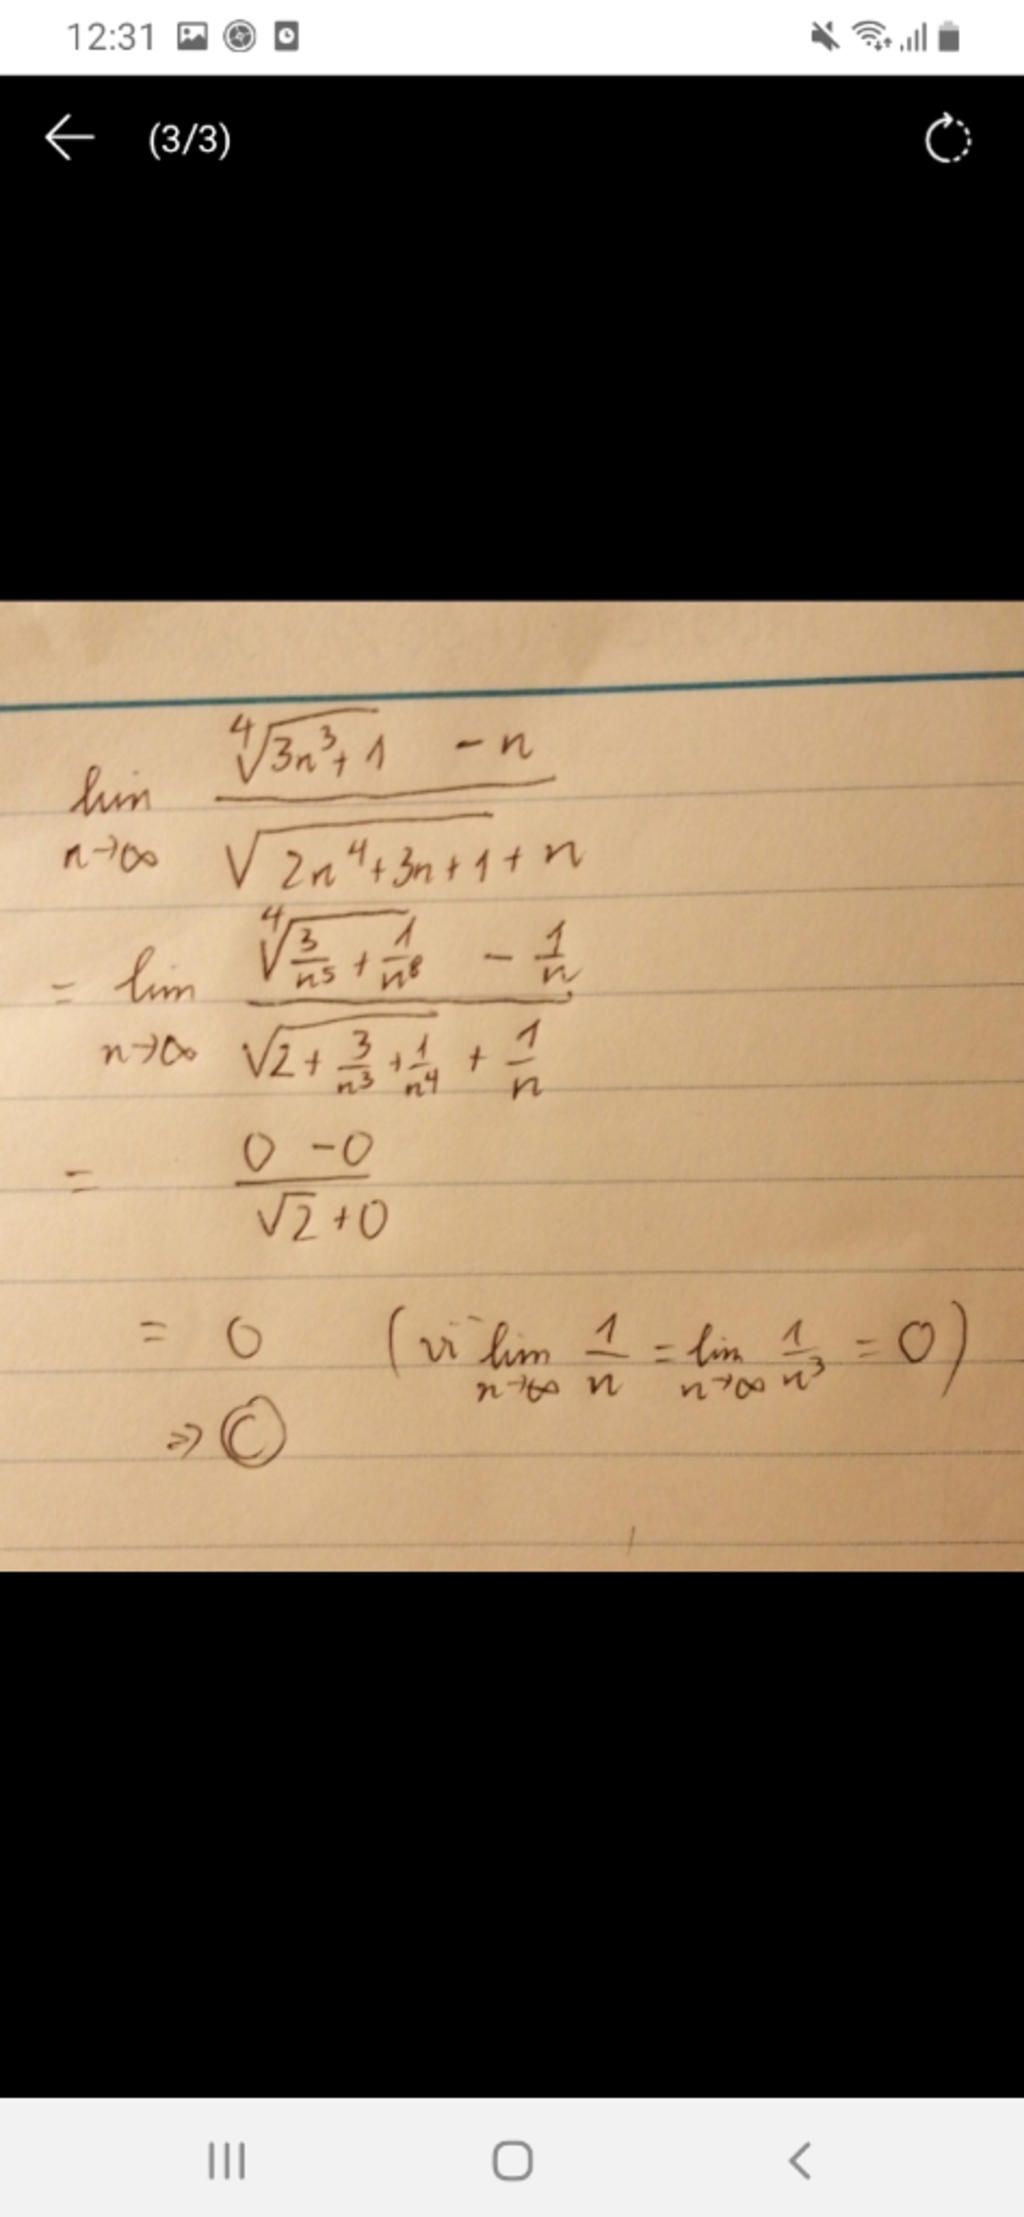 12:31
(3/3)
lim n→∞ (∜(3n³+1) - n) / (√(2n⁴+3n+1) + n)
= lim n→∞ (∜(3/n⁵ + 1/n⁸) - 1/n) / (√(2 + 3/n³ + 1/n⁴) + 1/n)
= (0 - 0) / (√2 + 0)
= 0 (vì lim n→∞ 1/n = lim n→∞ 1/n³ = 0)
⇒ Ⓒ